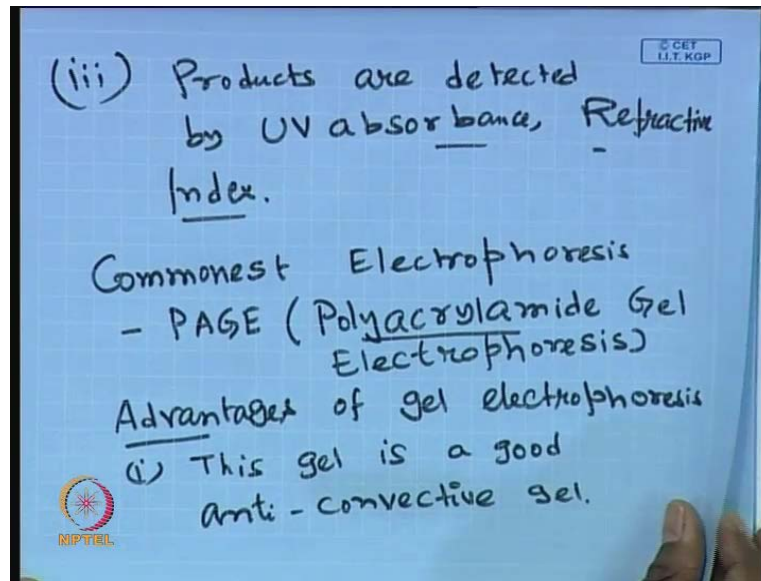 © CET
I.I.T. KGP
(iii) Products are detected
by UV absorbance, Refractive
Index.
Commonest Electrophoresis
- PAGE (Polyacrylamide Gel
Electrophoresis)
Advantages of gel electrophoresis
(i) This gel is a good
anti-convective gel.
NPTEL